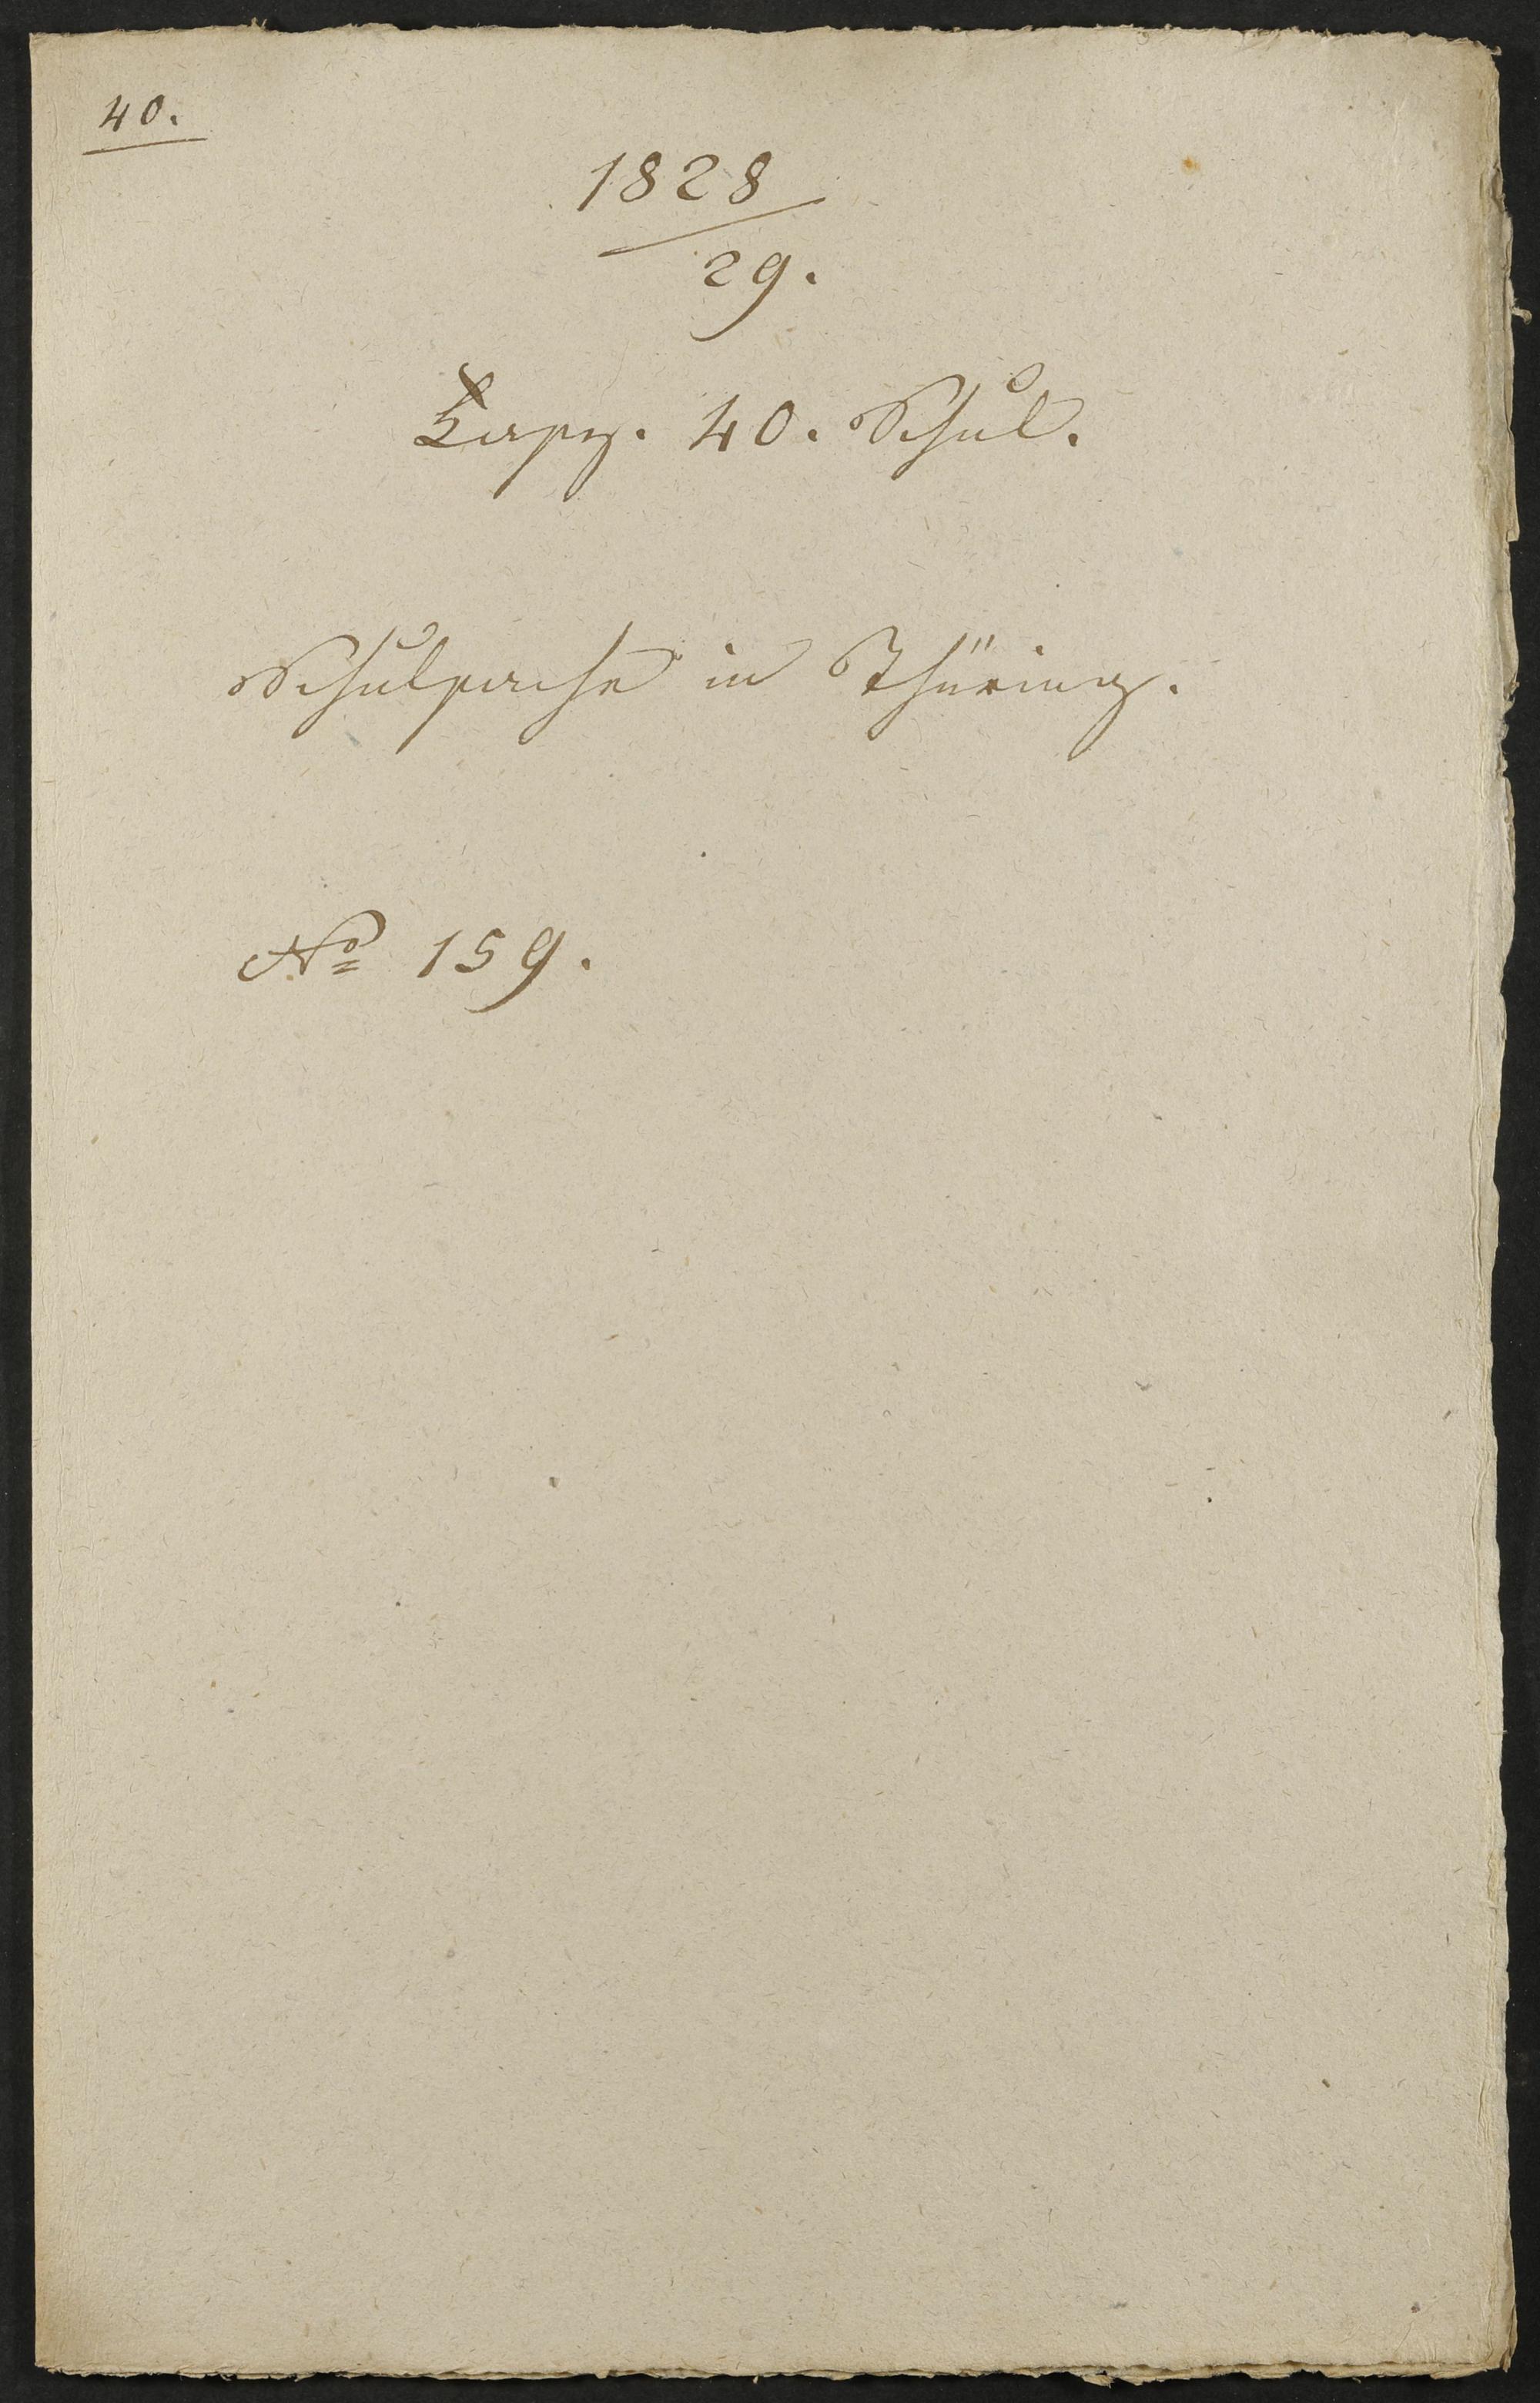 40.
1828
29.
40. Schul.
Schulsache in Thüring.
No 159.